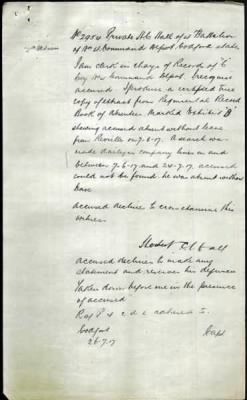 No 2954 Private H C Hall of 1st Battalion
of No 4 Command Depot Codford states
I am clerk in charge of Records of C
Coy No 4 Command Depot. I recognise
accused. I produce a certified true
copy of extract from Regimental Record
Book of Absentees Marked Exhibit "B"
showing accused absent without leave
from Reveille on 7.6.17. A search was
made company lines on and
between 7.6.17 and 24.7.17, accused
could not be found. he was absent without
leave
accused declines to cross examine this
witness
Hall
accused declines to make any
statement and reserves his defence
Taken down before me in the presence
of accused
Codford Capt
26.7.17